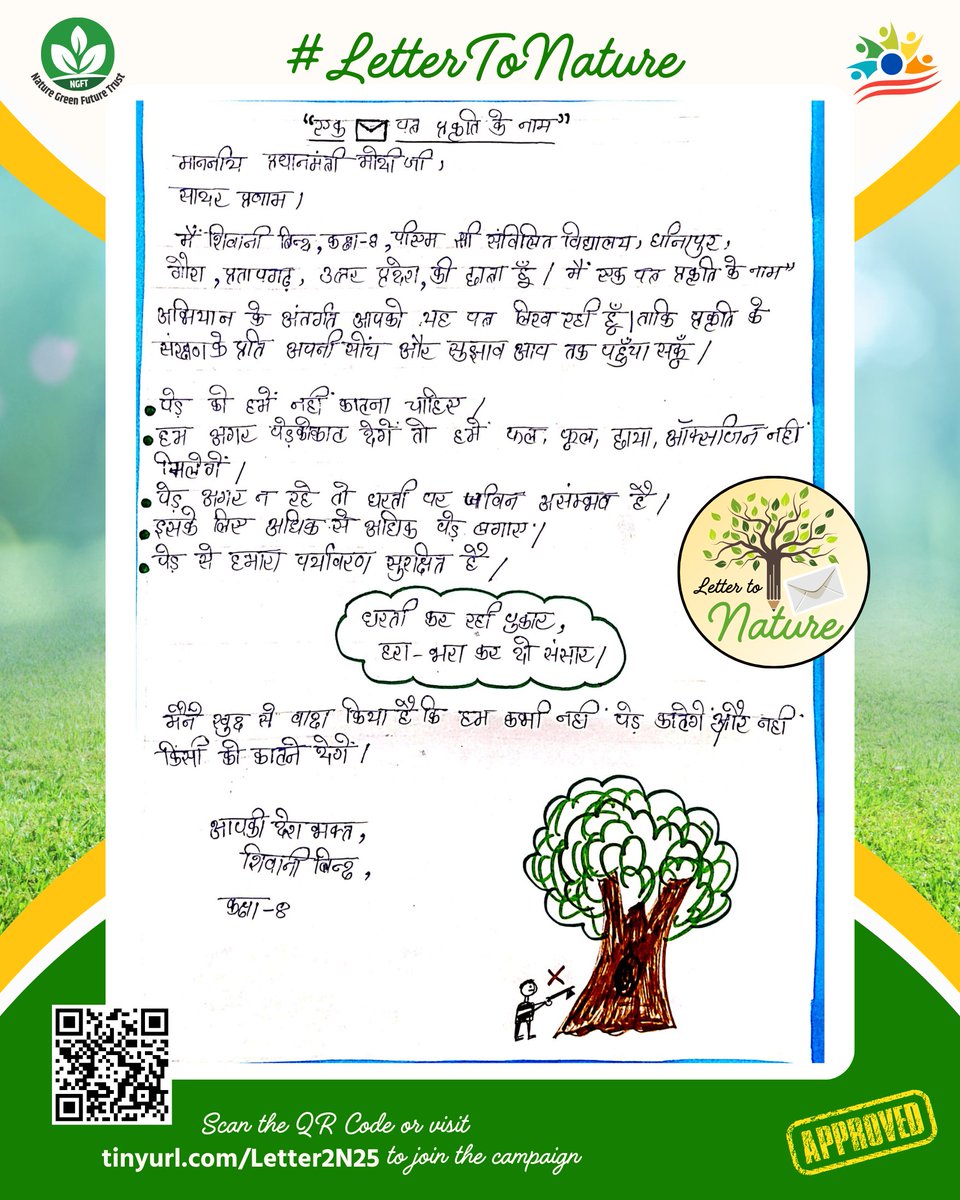 #LetterToNature
NGFT
Nature Green Future Trust
"एक पत्र प्रकृति के नाम"
माननीय प्रधानमंत्री मोदी जी,
सादर प्रणाम।
मैं शिवानी बिन्द, कक्षा-8, पीएम श्री संविलित विद्यालय,
गौरा, प्रतापगढ़, उत्तर प्रदेश, की छात्रा हूँ। मैं एक पत्र प्रकृति के नाम"
अभियान के अंतर्गत आपको यह पत्र लिख रही हूँ। ताकि प्रकृति के
संरक्षण के प्रति अपनी सोंच और सुझाव आप तक पहुँचा सकूँ।
• पेड़ को हमें नहीं काटना चाहिए।
• हम अगर पेड़ को काट देगें तो हमें फल, फूल, छाया, ऑक्सजिन नहीं
मिलेगें।
• पेड़ अगर न रहे तो धरती पर जीवन असंम्भव है।
• इसके लिए अधिक से अधिक पेड़ लगाए।
• पेड़ से हमारा पर्यावरण सुरक्षित है।
Letter to
Nature
धरती कर रही पुकार,
हरा-भरा कर दो संसार।
मैंने खुद से वादा किया है कि हम कभी नहीं पेड़ काटेगें और नहीं
किसी को काटने देगें।
आपकी देश भक्त,
शिवानी बिन्द,
कक्षा-8
Scan the QR Code or visit
tinyurl.com/Letter2N25 to join the campaign
APPROVED